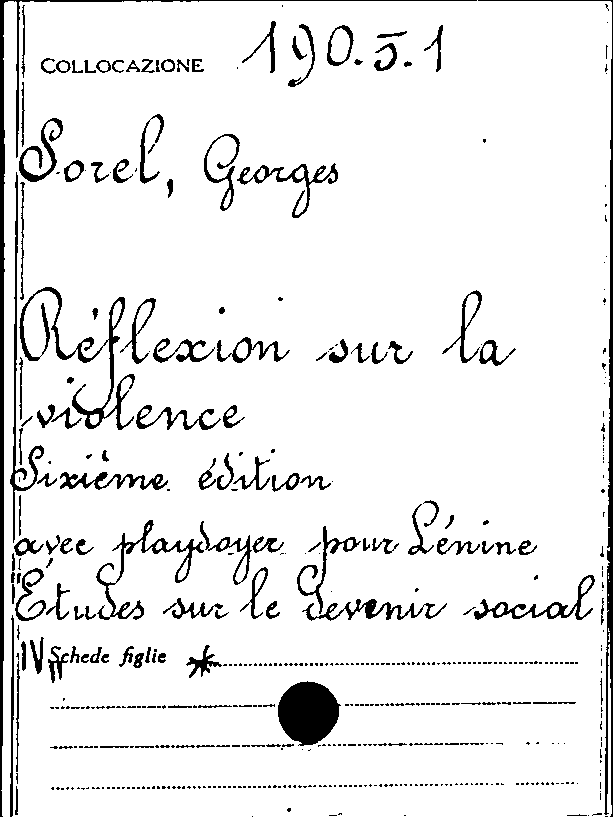 COLLOCAZIONE 190.5.1
Sorel, Georges
Réflexion sur la
violence
Sixième édition
avec playdoyer pour Lénine
"Études sur le devenir social
IV" Schede figlie *